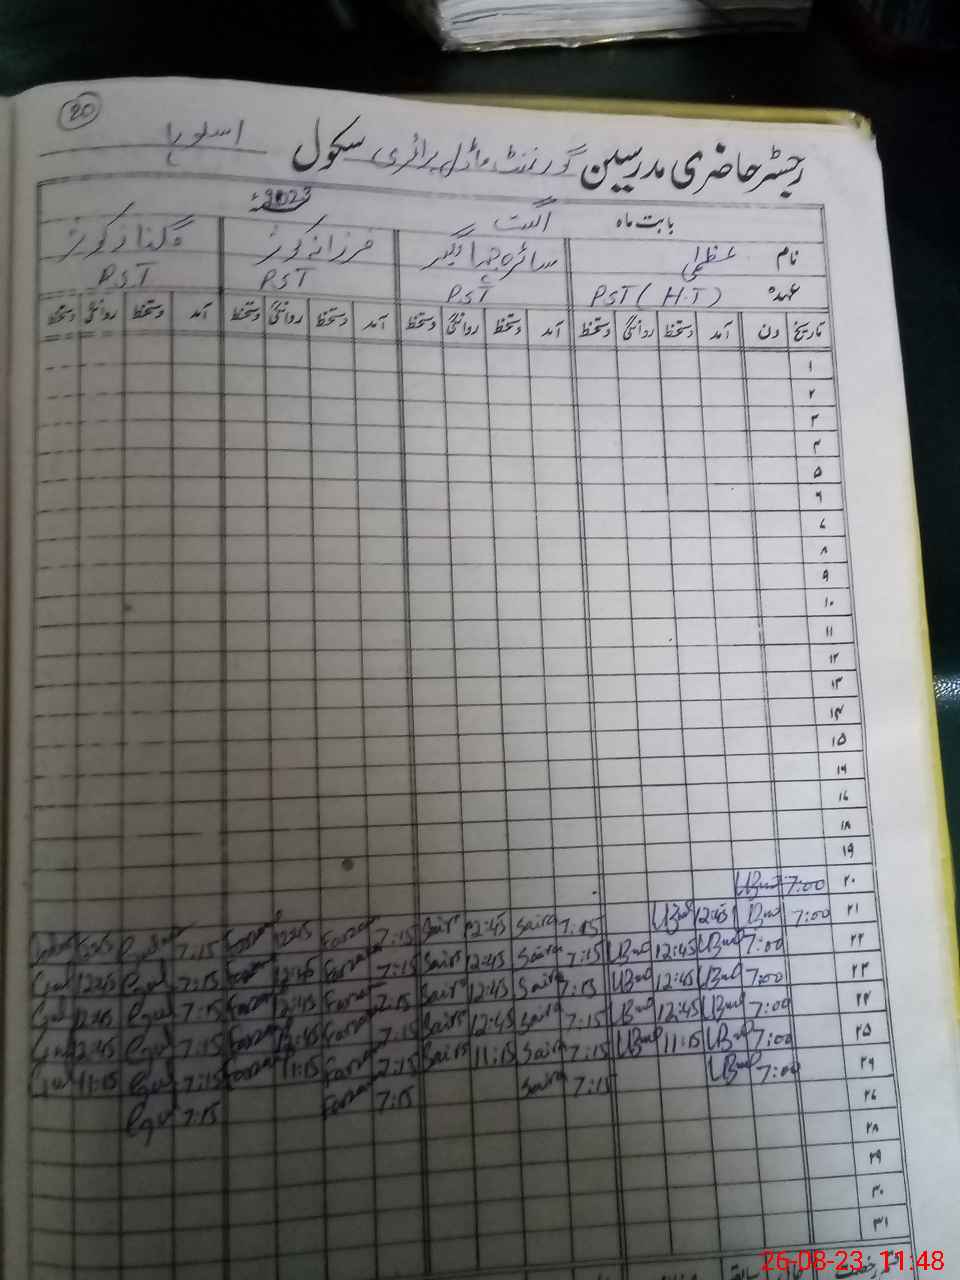 20
رجسٹر حاضری مدرسین گورنمنٹ ماڈل پرائمری سکول
بابت ماہ اگست 2023ء
نام عظمیٰ سائرہ جہانگیر فرزانہ کوثر گلناز کوثر
عہدہ PST (H.T) PST PST PST
تاریخ دن آمد دستخط روانگی دستخط آمد دستخط روانگی دستخط آمد دستخط روانگی دستخط آمد دستخط روانگی دستخط
۱
۲
۳
۴
۵
۶
۷
۸
۹
۱۰
۱۱
۱۲
۱۳
۱۴
۱۵
۱۶
۱۷
۱۸
۱۹
۲۰ 7:00
۲۱ 7:00 12:45 7:15 Saira 12:45 Saira 7:15 Farzan 12:45 7:15
۲۲ 7:00 12:45 7:15 Saira 12:45 Saira 7:15 Farzan 12:45 Farzan 7:15 Gul 12:45 Gul
۲۳ 7:00 12:45 7:15 Saira 12:45 Saira 7:15 Farzan 12:45 Farzan 7:15 Gul 12:45 Gul
۲۴ 7:00 12:45 7:15 Saira 12:45 Saira 7:15 Farzan 12:45 Farzan 7:15 Gul 12:45 Gul
۲۵ 7:00 11:15 7:15 Saira 11:15 Saira 7:15 Farzan 11:15 Farzan 7:15 Gul 11:15 Gul
۲۶ 7:00 7:15 Saira 7:15 Farzan 7:15 Gul
۲۷
۲۸
۲۹
۳۰
۳۱
26-08-23, 11:48